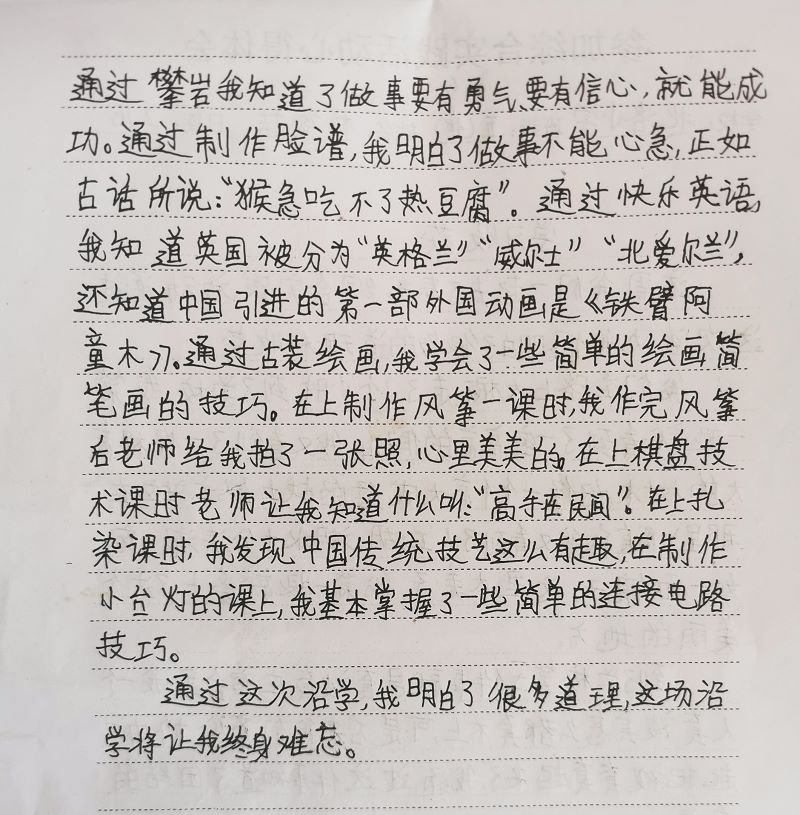 通过攀岩我知道了做事要有勇气,要有信心,就能成
功。通过制作脸谱,我明白了做事不能心急,正如
古话所说:“猴急吃不了热豆腐”。通过快乐英语,
我知道英国被分为“英格兰”“威尔士”“北爱尔兰”,
还知道中国引进的第一部外国动画是《铁臂阿
童木》。通过古装绘画,我学会了一些简单的绘画简
笔画的技巧。在上制作风筝一课时,我作完风筝
后老师给我拍了一张照,心里美美的,在上棋盘技
术课时老师让我知道什么叫:“高手在民间”。在上扎
染课时,我发现中国传统技艺这么有趣,在制作
小台灯的课上,我基本掌握了一些简单的连接电路
技巧。
通过这次沿学,我明白了很多道理,这场沿
学将让我终身难忘。